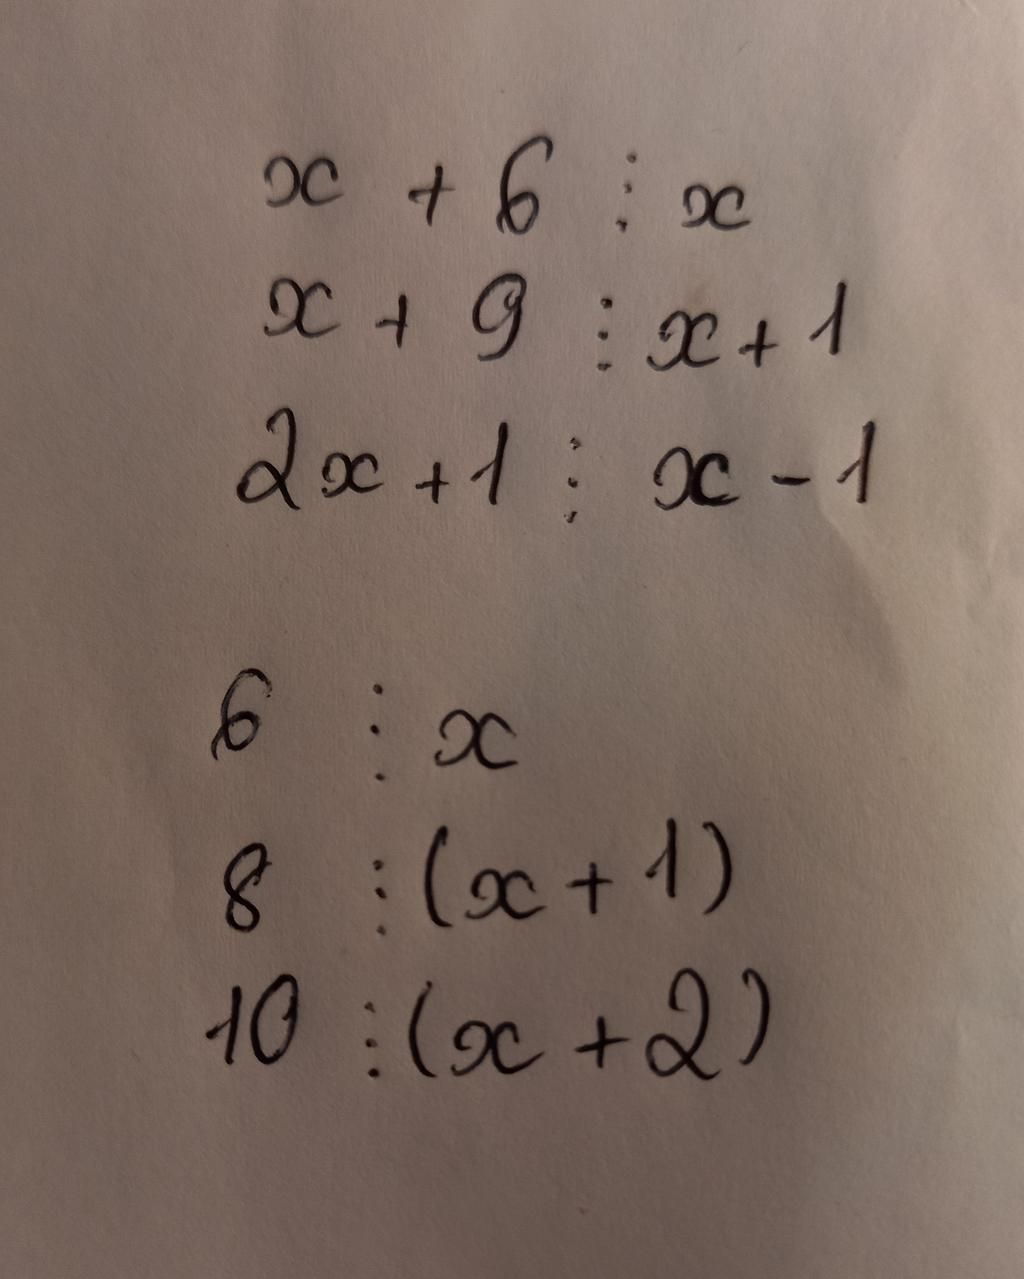 x + 6 ⋮ x
x + 9 ⋮ x + 1
2x + 1 ⋮ x - 1
6 ⋮ x
8 ⋮ (x + 1)
10 ⋮ (x + 2)